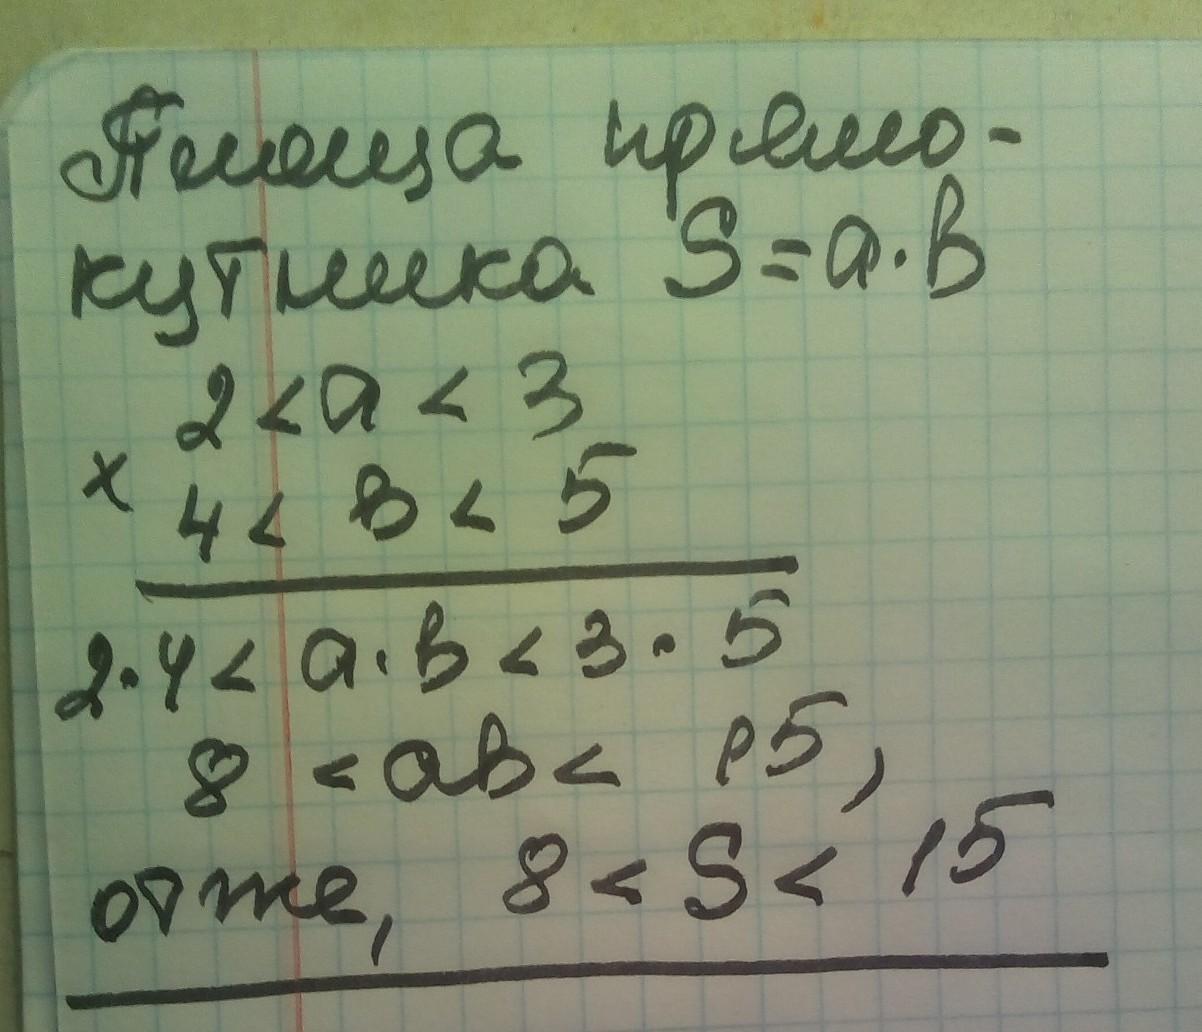 Площа прямо-
кутника S=a·b
2<a<3
x
4<b<5
2·4<a·b<3·5
8<ab<15,
отже, 8<S<15